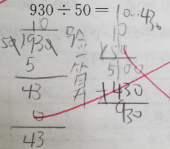 930÷50=10…430
10
50 930
5
43
0
43
验算
10
×50
500
+430
930